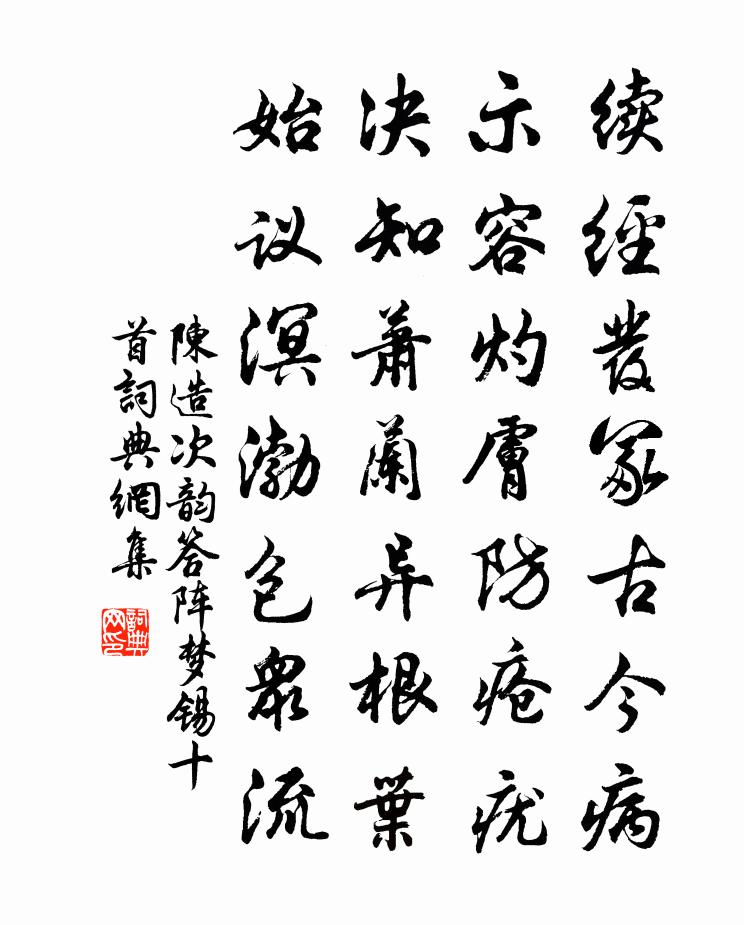 续經發冢古今病
示容灼膚防疮疣
决知蕭蘭异根葉
始议溟渤包眾流
陳造次韵答阵梦锡十
首詞典網集
詞典网印